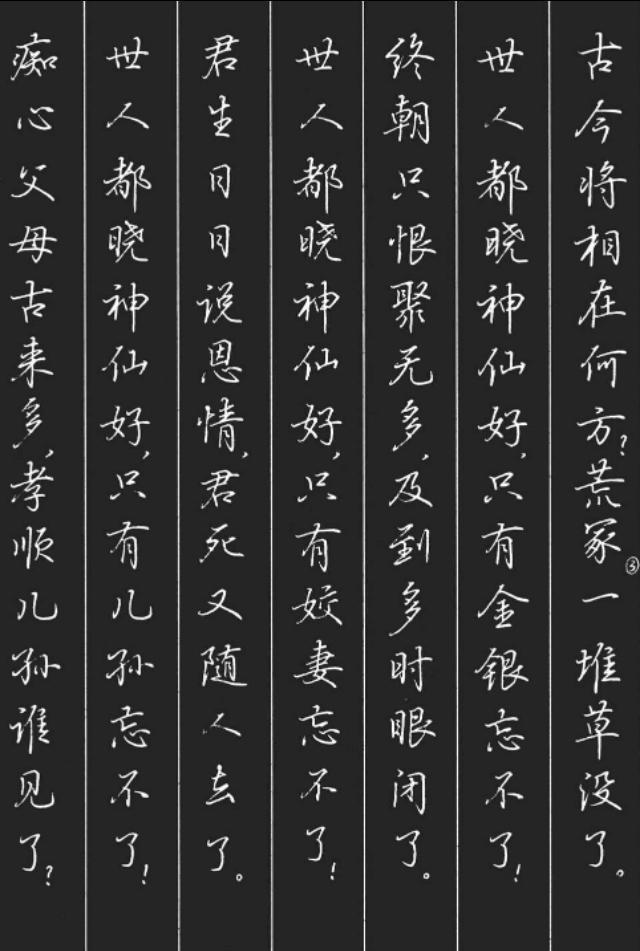 古今将相在何方?荒冢③一堆草没了。
世人都晓神仙好,只有金银忘不了!
终朝只恨聚无多,及到多时眼闭了。
世人都晓神仙好,只有姣妻忘不了!
君生日日说恩情,君死又随人去了。
世人都晓神仙好,只有儿孙忘不了!
痴心父母古来多,孝顺儿孙谁见了?